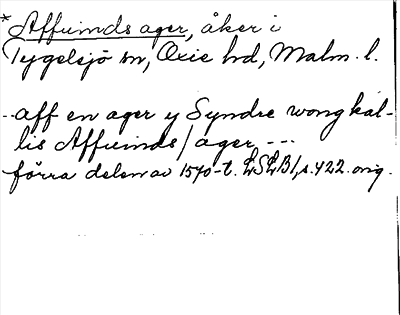 * Affuinds ager, åker i
Tygelsjö sn, Oxie hd, Malm. l.
--aff en ager y Syndre wong kal-
lis Affuinds/ager ---
förra delen av 1570-t. LSLB1, s. 422. orig.